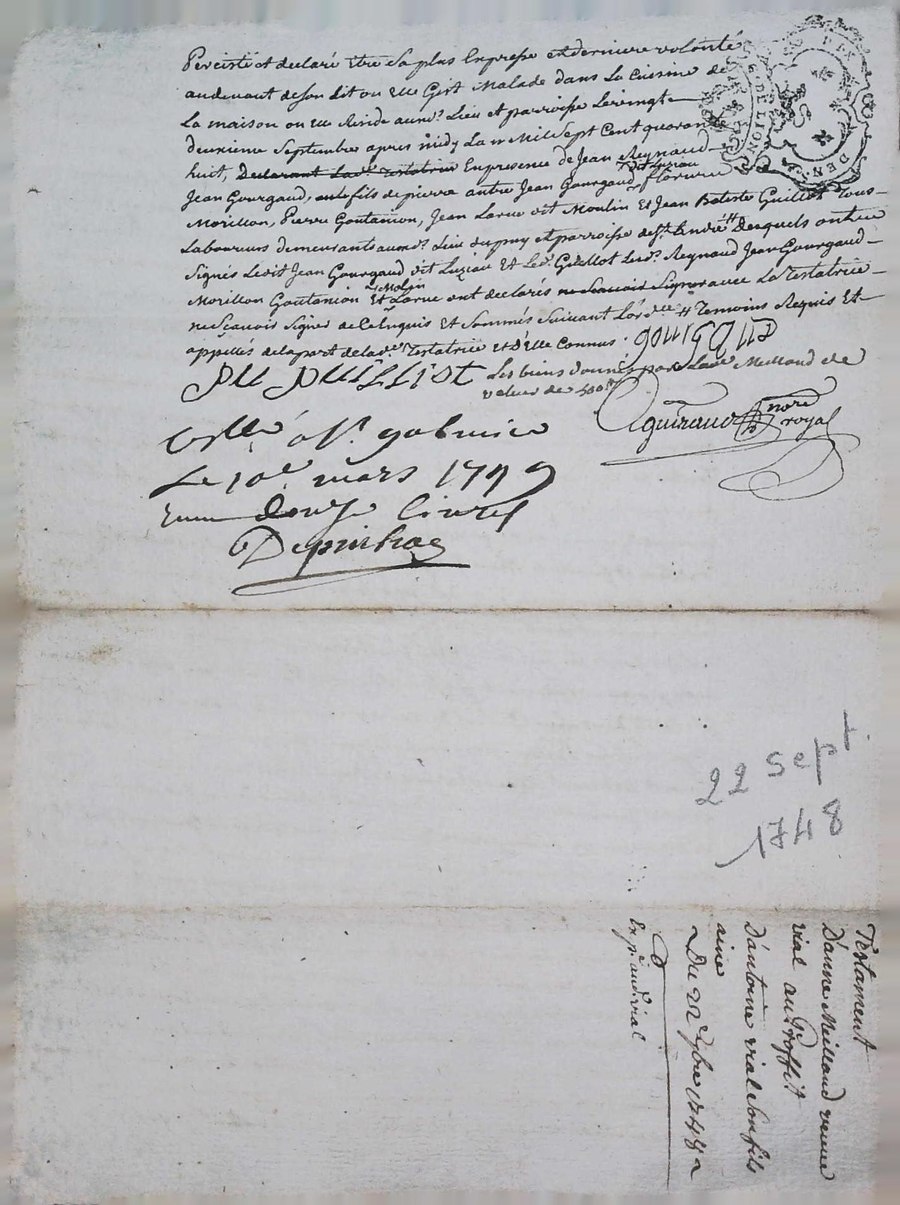 Percisté et declaré être Sa plus Expresse et derniere volonté
audevant de Son lit ou elle Gist Malade dans La Cuisine de
La maison ou elle Reside aumd. Lieu et parroisse Levingt
deuxieme Septembre apres midy Lan Mil Sept Cent quarante
huit, Declarant Lad. testatrice En presence de Jean Reynaud
Jean Gourgaud, fils de pierre autre Jean Gourgaud dit Luziau
Morillon, Pierre Goutanion, Jean Larue dit Moulin Et Jean Batiste Guillot Tous
Laboureurs demeurants aumd. Lieu dupuy et parroisse de St. André desquels ont icy
Signés Ledit Jean Gourgaud dit Luziau Et Led. Guillot Led. Reynaud Jean Gourgaud
Morillon Goutanion Et Larue ont declarés ne Scavoir Signer avec La Testatrice
ne Sçavoir Signer de Ce Enquis Et Sommés Suivant L'ord.ce Temoins Requis Et
appellés delapart delad. Testatrice et d'Elle Connus.
Les biens donnés par Lad. Meilland de
valeur de 500
nore
royal
Le 10e. mars 1749
douze livres
22 sept.
1748
Testament
D'anne Meilland veuve
vial au Proffit
D'antoine vial Son fils
ainé
Du 22e 7bre 1748
Exp.é aud. vial